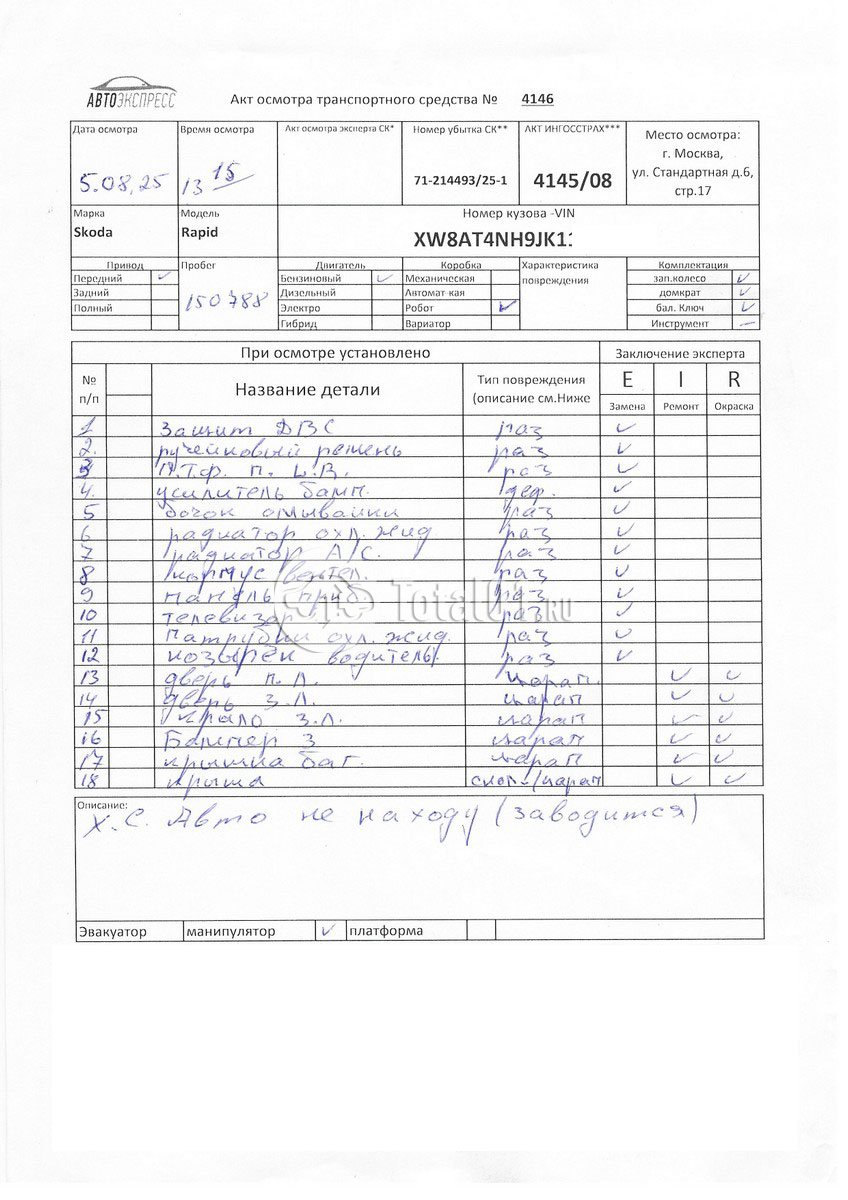 АВТОЭКСПРЕСС
Акт осмотра транспортного средства № 4146
Дата осмотра Время осмотра Акт осмотра эксперта СК* Номер убытка СК** АКТ ИНГОССТРАХ*** Место осмотра:
г. Москва,
ул. Стандартная д.6,
стр.17
5.08.25 13 15 71-214493/25-1 4145/08
Марка Модель Номер кузова -VIN
Skoda Rapid XW8AT4NH9JK1
Привод Пробег Двигатель Коробка Характеристика повреждения Комплектация
Передний ✓ Бензиновый ✓ Механическая зап.колесо ✓
Задний Дизельный Автомат-кая домкрат ✓
Полный 150788 Электро Робот ✓ бал. Ключ ✓
Гибрид Вариатор Инструмент —
При осмотре установлено Заключение эксперта
№ п/п Название детали Тип повреждения (описание см.Ниже E I R
Замена Ремонт Окраска
1 Защит ДВС раз ✓
2. ручейковый ремень раз ✓
3 П.Т.Ф. п. раз ✓
4. усилитель бамп. деф. ✓
5 бочок омывайки раз ✓
6 радиатор охл. жид раз ✓
7 радиатор A/C. раз ✓
8 корпус вентел. раз ✓
9 панель при раз ✓
10 телевизор раз ✓
11 патрубки охл. жид. раз ✓
12 козырек водитель. раз ✓
13 дверь п.л. царап. ✓ ✓
14 дверь з.л. царап ✓ ✓
15 крыло з.л. царап ✓ ✓
16 Бампер з царап ✓ ✓
17 крышка баг. царап ✓ ✓
18 крыша скол-/царап ✓ ✓
Описание:
Х.С. Авто не на ходу (заводится)
Эвакуатор манипулятор ✓ платформа